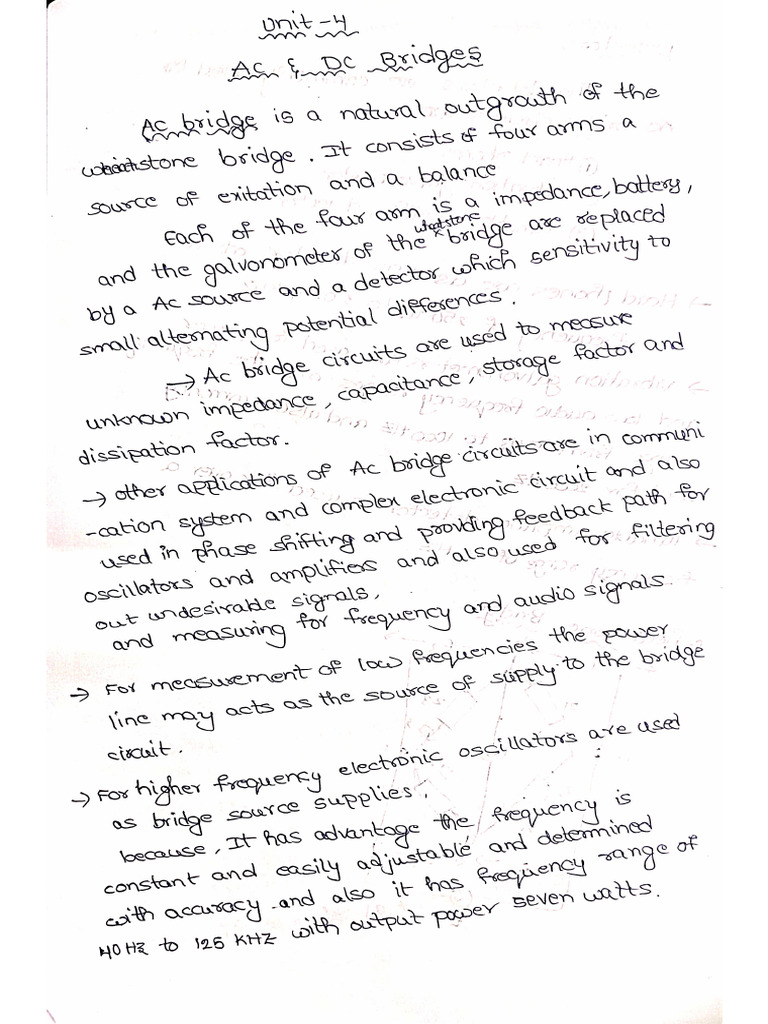 Unit-4
AC & DC Bridges
AC bridge is a natural outgrouth of the
wheatstone bridge. It consists of four arms a
source of exitation and a balance
Each of the four arm is a impedance, battery,
and the galvonometer of the wheatstone bridge are replaced
by a AC source and a detector which sensitivity to
small alternating potential differences.
→ AC bridge circuits are used to measure
unknown impedance, capacitance, storage factor and
dissipation factor.
→ other applications of AC bridge circuits are in communi
-cation system and complex electronic circuit and also
used in phase shifting and providing feedback path for
oscillators and amplifiers and also used for filtering
out undesirable signals,
and measuring for frequency and audio signals.
→ For measurement of low frequencies the power
line may acts as the source of supply to the bridge
circuit.
→ For higher frequency electronic oscillators are used
as bridge source supplies.
because, It has advantage the frequency is
constant and easily adjustable and determined
with accuracy and also it has frequency range of
40 HZ to 125 KHZ with output power seven watts.